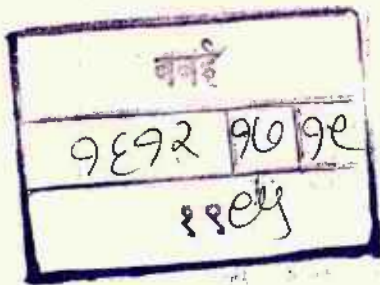 बबई
१६१२ १७ १९
१९९५